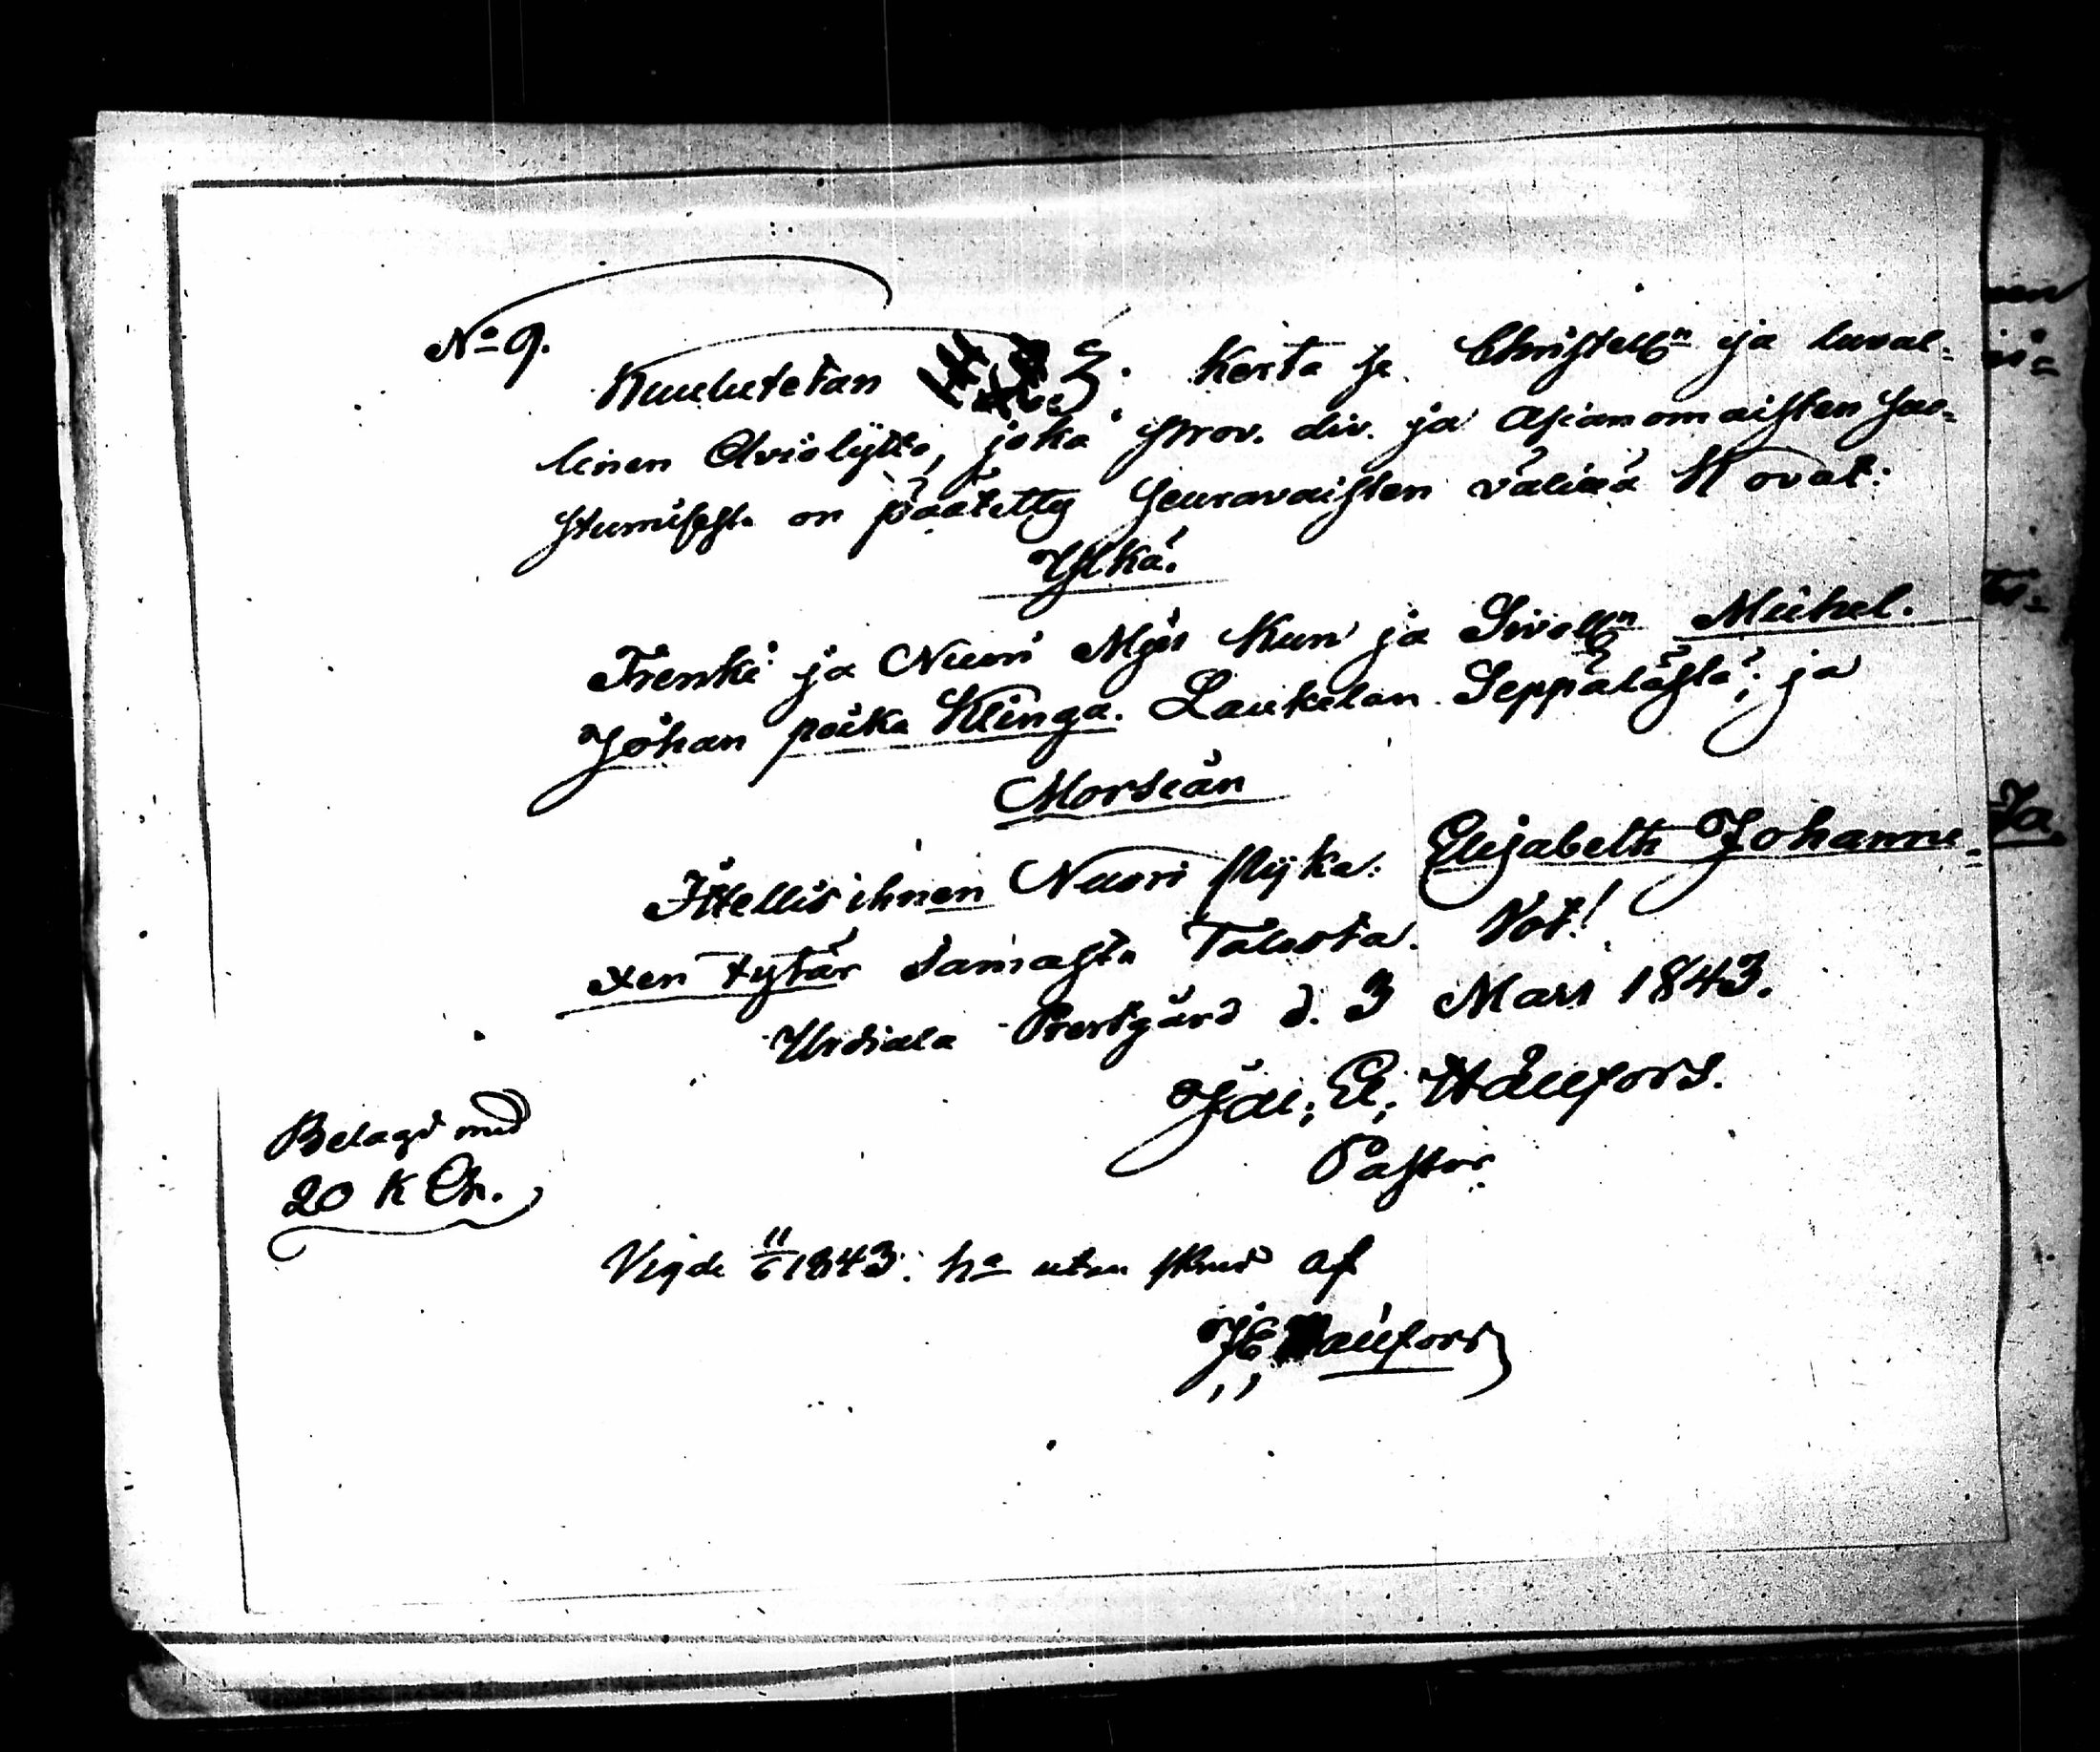 No 9.
Kuulutetan 3. Kerta se Christelln ja luval-
linen Aviolytto, joka prov. div. ja Asianomaisten suo-
stumisesta on päätetty seuravaisten välillä Novat:
Ylkä.
Trenki ja Nuori Mjes Kun ja Sivelln Michel
Johan poika Klinga. Laukelan Seppälästä; ja
Morsian
Ittellisihnen Nuori Pijka: Elisabeth Johanne-
xen tytär samasta Talosta. Not!
Urdiala Prestgård d. 3 Mars 1843.
Joh. E. Hällfors.
Pastor
Belagd med
20 K Ch.
Vigde 11/6 1843. ho utan skrud af
JE Hällfors